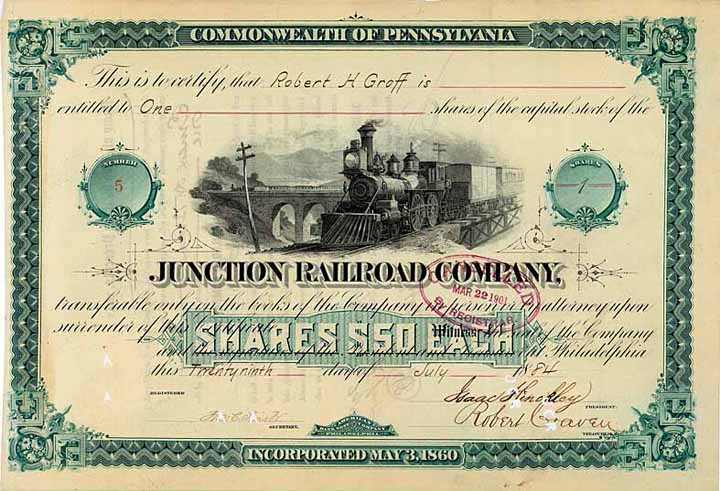 COMMONWEALTH OF PENNSYLVANIA
This is to certify, that Robert H Groff is
entitled to One shares of the capital stock of the
NUMBER
5
SHARES
1
JUNCTION RAILROAD COMPANY,
transferable only on the books of the Company in person or by attorney upon
MAR 22 1901
surrender of this Witness of the Company
SHARES $50 EACH
Philadelphia
this Twenty ninth day of July 1884
REGISTERED
Isaac Hinckley
PRESIDENT.
SECRETARY.
Robert Craven
PHILADELPHIA
INCORPORATED MAY 3, 1860